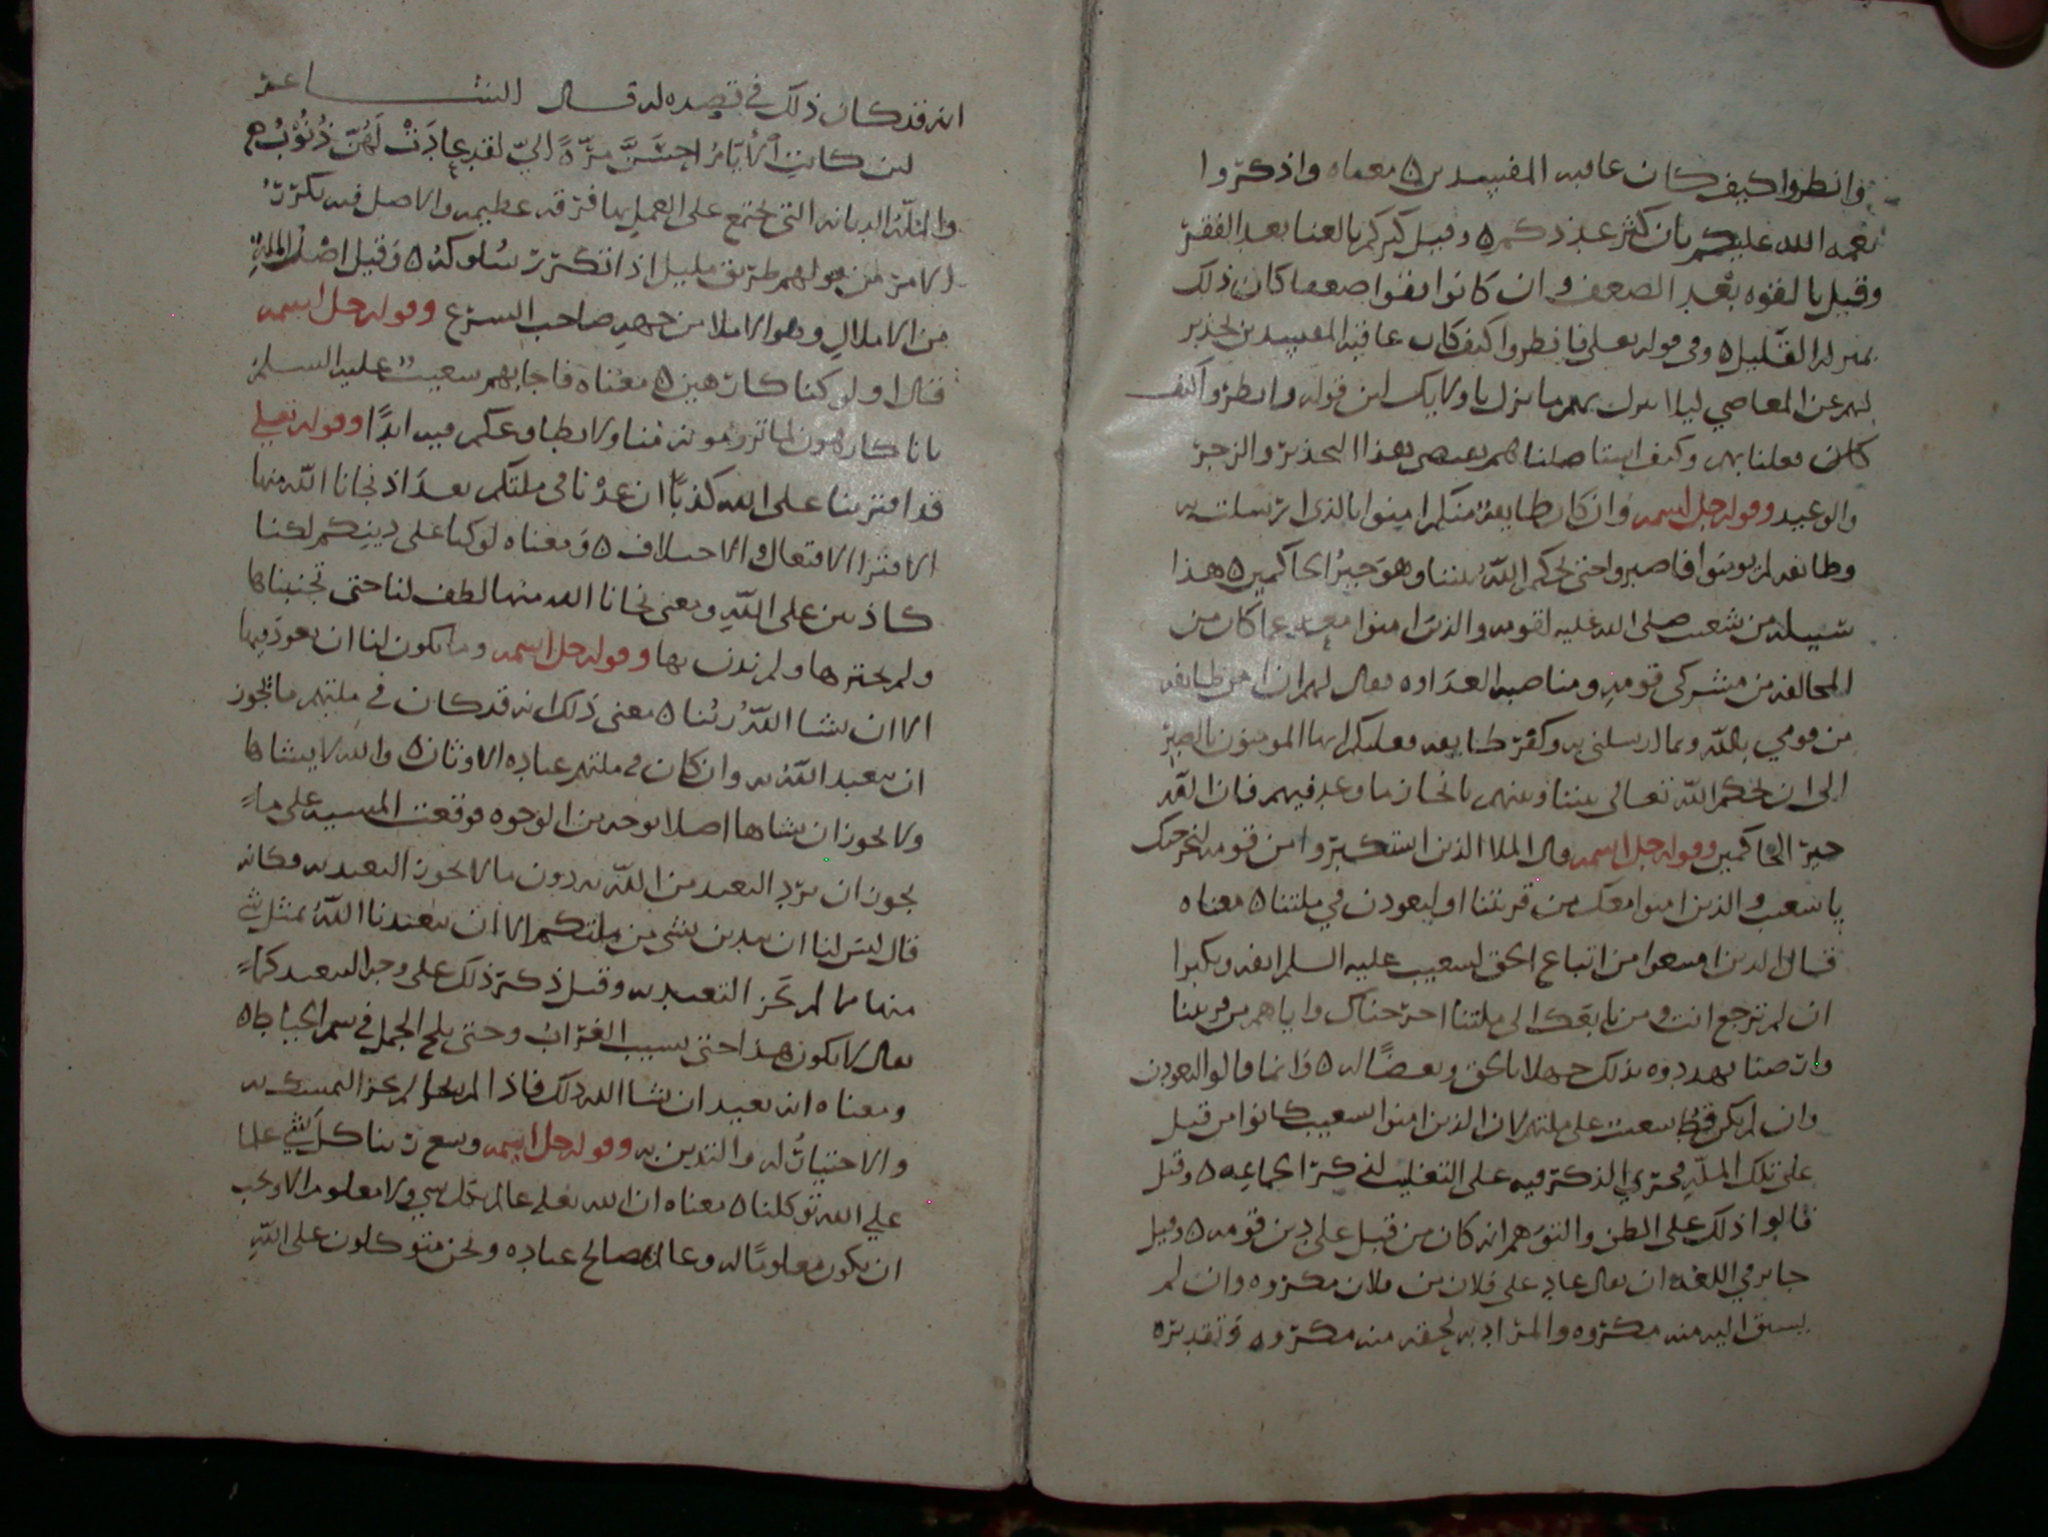 وانظروا كيف كان عاقبه المفسدين ٥ معناه واذكروا
نعمه الله عليكم بان كثر عددكم ٥ وقيل كثركم بالغنا بعد الفقر
وقيل بالقوه بعد الضعف وان كانوا فقرا ضعفا كان ذلك
بمنزله القليل ٥ وفي قوله تعلى فانظروا كيف كان عاقبه المفسدين تحذير
لهم عن المعاصي ليلا ينزل بهم ما نزل باولايك لان قوله وانظروا كيف
كان فعلنا بهم وكيف استاصلناهم بعضهم بهذا التحذير والزجر
والوعيد وقوله جل اسمه وان كان طايفه منكم امنوا بالذي ارسلت به
وطايفه لم يومنوا فاصبروا حتى يحكم الله بيننا وهو خير الحاكمين ٥ هذا
تسليه من شعيب صلى الله عليه لقومه والذين امنوا معه عما كان من
المخالفه من مشركي قومه ومناصبه العداوه فقال لهم ان امن طايفه
من قومي بالله وبما ارسلني به وكفر طايفه فعليكم ايها المومنون بالصبر
الى ان يحكم الله تعالى بيننا وبينهم بانجاز ما وعد فيهم فان الله
خير الحاكمين وقوله جل اسمه قال الملا الذين استكبروا من قومه لنخرجنك
يا شعيب والذين امنوا معك من قريتنا او لتعودن في ملتنا ٥ معناه
قال الذين امتنعوا من اتباع الحق لشعيب عليه السلم انفه وتكبرا
ان لم ترجع انت ومن تابعك الى ملتنا اخرجناك واياهم من قريتنا
وارضنا يهددوه بذلك جهلا بالحق وبغضا له ٥ وانما قالوا لتعودن
وان لم يكن قط شعيب على ملتهم لان الذين امنوا لشعيب كانوا من قبل
على تلك المله فجرى الذكر فيه على التغليب لذكر الجماعه ٥ وقيل
قالوا ذلك على الظن والتوهم انه كان من قبل على دين قومه ٥ وقيل
جايز في اللغه ان يقال عاد علي فلان من فلان مكروه وان لم
يسبق اليه منه مكروه والمراد به لحقه منه مكروه وتقديره
انه قد كان ذلك في قصده له قال الشاعر
لين كانت الايام احسن مره الي لقد عادت لهن ذنوب ٥
والمله الديانه التي تجتمع على العمل بها فرقه عظيمه والاصل فيه تكرر
الامر من قولهم طريق مليل اذا تكرر سلوكه ٥ وقيل اصل المله
من الاملال وهو الاملا من جهه صاحب الشرع وقوله جل اسمه
قال اولو كنا كارهين ٥ معناه فاجابهم شعيب عليه السلم
بانا كارهون لما ترومونه منا ولا نطاوعكم فيه ابدا وقوله تعلى
قد افترينا على الله كذبا ان عدنا في ملتكم بعد اذ نجانا الله منها
الافترا الافتعال والاختلاق ٥ ومعناه لو كنا على دينكم لكنا
كاذبين على الله ومعنى نجانا الله منها لطف لنا حتى تجنبناها
ولم نخترها ولم ندن بها وقوله جل اسمه وما يكون لنا ان نعود فيها
الا ان يشا الله ربنا ٥ معنى ذلك انه قد كان في ملتهم ما يجوز
ان يتعبد الله به وان كان في ملتهم عباده الاوثان ٥ والله لا يشاها
ولا يجوز ان يشاها اصلا بوجه من الوجوه فوقعت المشيه على ما
يجوز ان يرد التعبد من الله به دون ما لا يجوز التعبد به فكانه
قال ليس لنا ان ندين بشي من ملتكم الا ان يتعبدنا الله بمثل شي
منها مما لم نجز التعبد به وقيل ذكر ذلك على وجه التبعيد كما
يقال لا يكون هذا حتى يشيب الغراب وحتى يلج الجمل في سم الخياط ٥
ومعناه انه بعيد ان يشا الله ذلك فاذا لم يجز التمسك به
والاجتبات له والتدين به وقوله جل اسمه وسع ربنا كل شي علما
على الله توكلنا ٥ معناه ان الله تعلى عالم بكل شي ولا معلوم الا ويجب
ان يكون معلوما له وعالم بمصالح عباده ونحن متوكلون على الله